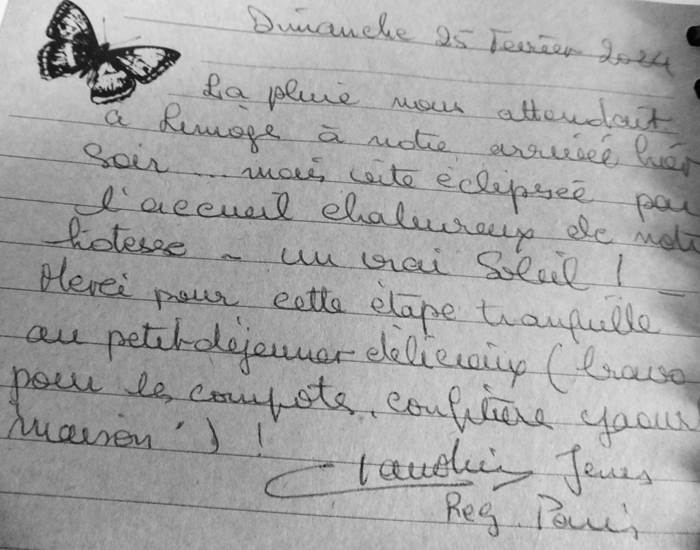 Dimanche 25 Fevrier 2024
La pluie nous attendait
a Limoge à notre arrivée hier
soir... mais vite éclipsée par
l'accueil chaleureux de notre
hotesse - un vrai Soleil ! -
Merci pour cette étape tranquille
au petit-déjeuner délicieux (bravo
pour les compote, confitère yaour
maison ) !
Reg. Paris